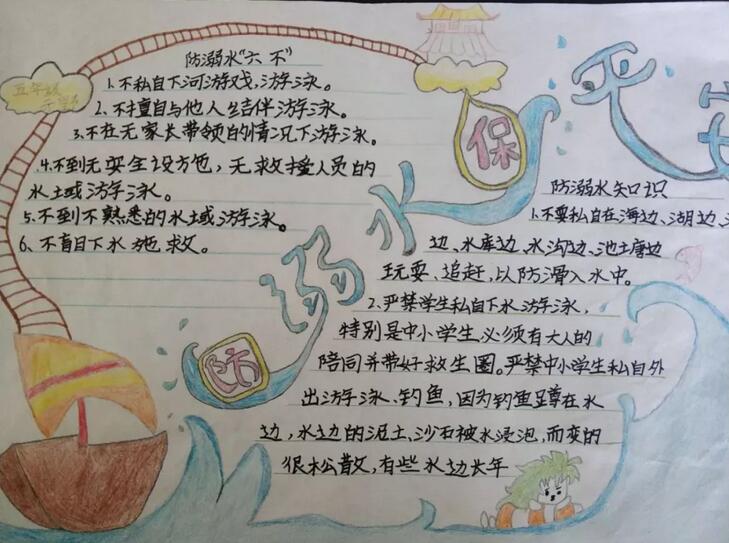 五年级
防溺水“六不”
1.不私自下河游戏,游泳。
2、不擅自与他人结伴游泳。
3.不在无家长带领的情况下游泳。
4.不到无安全设施,无救援人员的
水域游泳。
5.不到不熟悉的水域游泳。
6、不盲目下水施救。
防溺水保平安
防溺水知识
1.不要私自在海边、湖边、
边、水库边、水沟边、池塘边
玩耍、追赶,以防滑入水中。
2、严禁学生私自下水游泳,
特别是中小学生必须有大人的
陪同并带好救生圈。严禁中小学生私自外
出游泳、钓鱼,因为钓鱼蹲在水
边,水边的泥土、沙石被水浸泡,而变的
很松散,有些水边长年